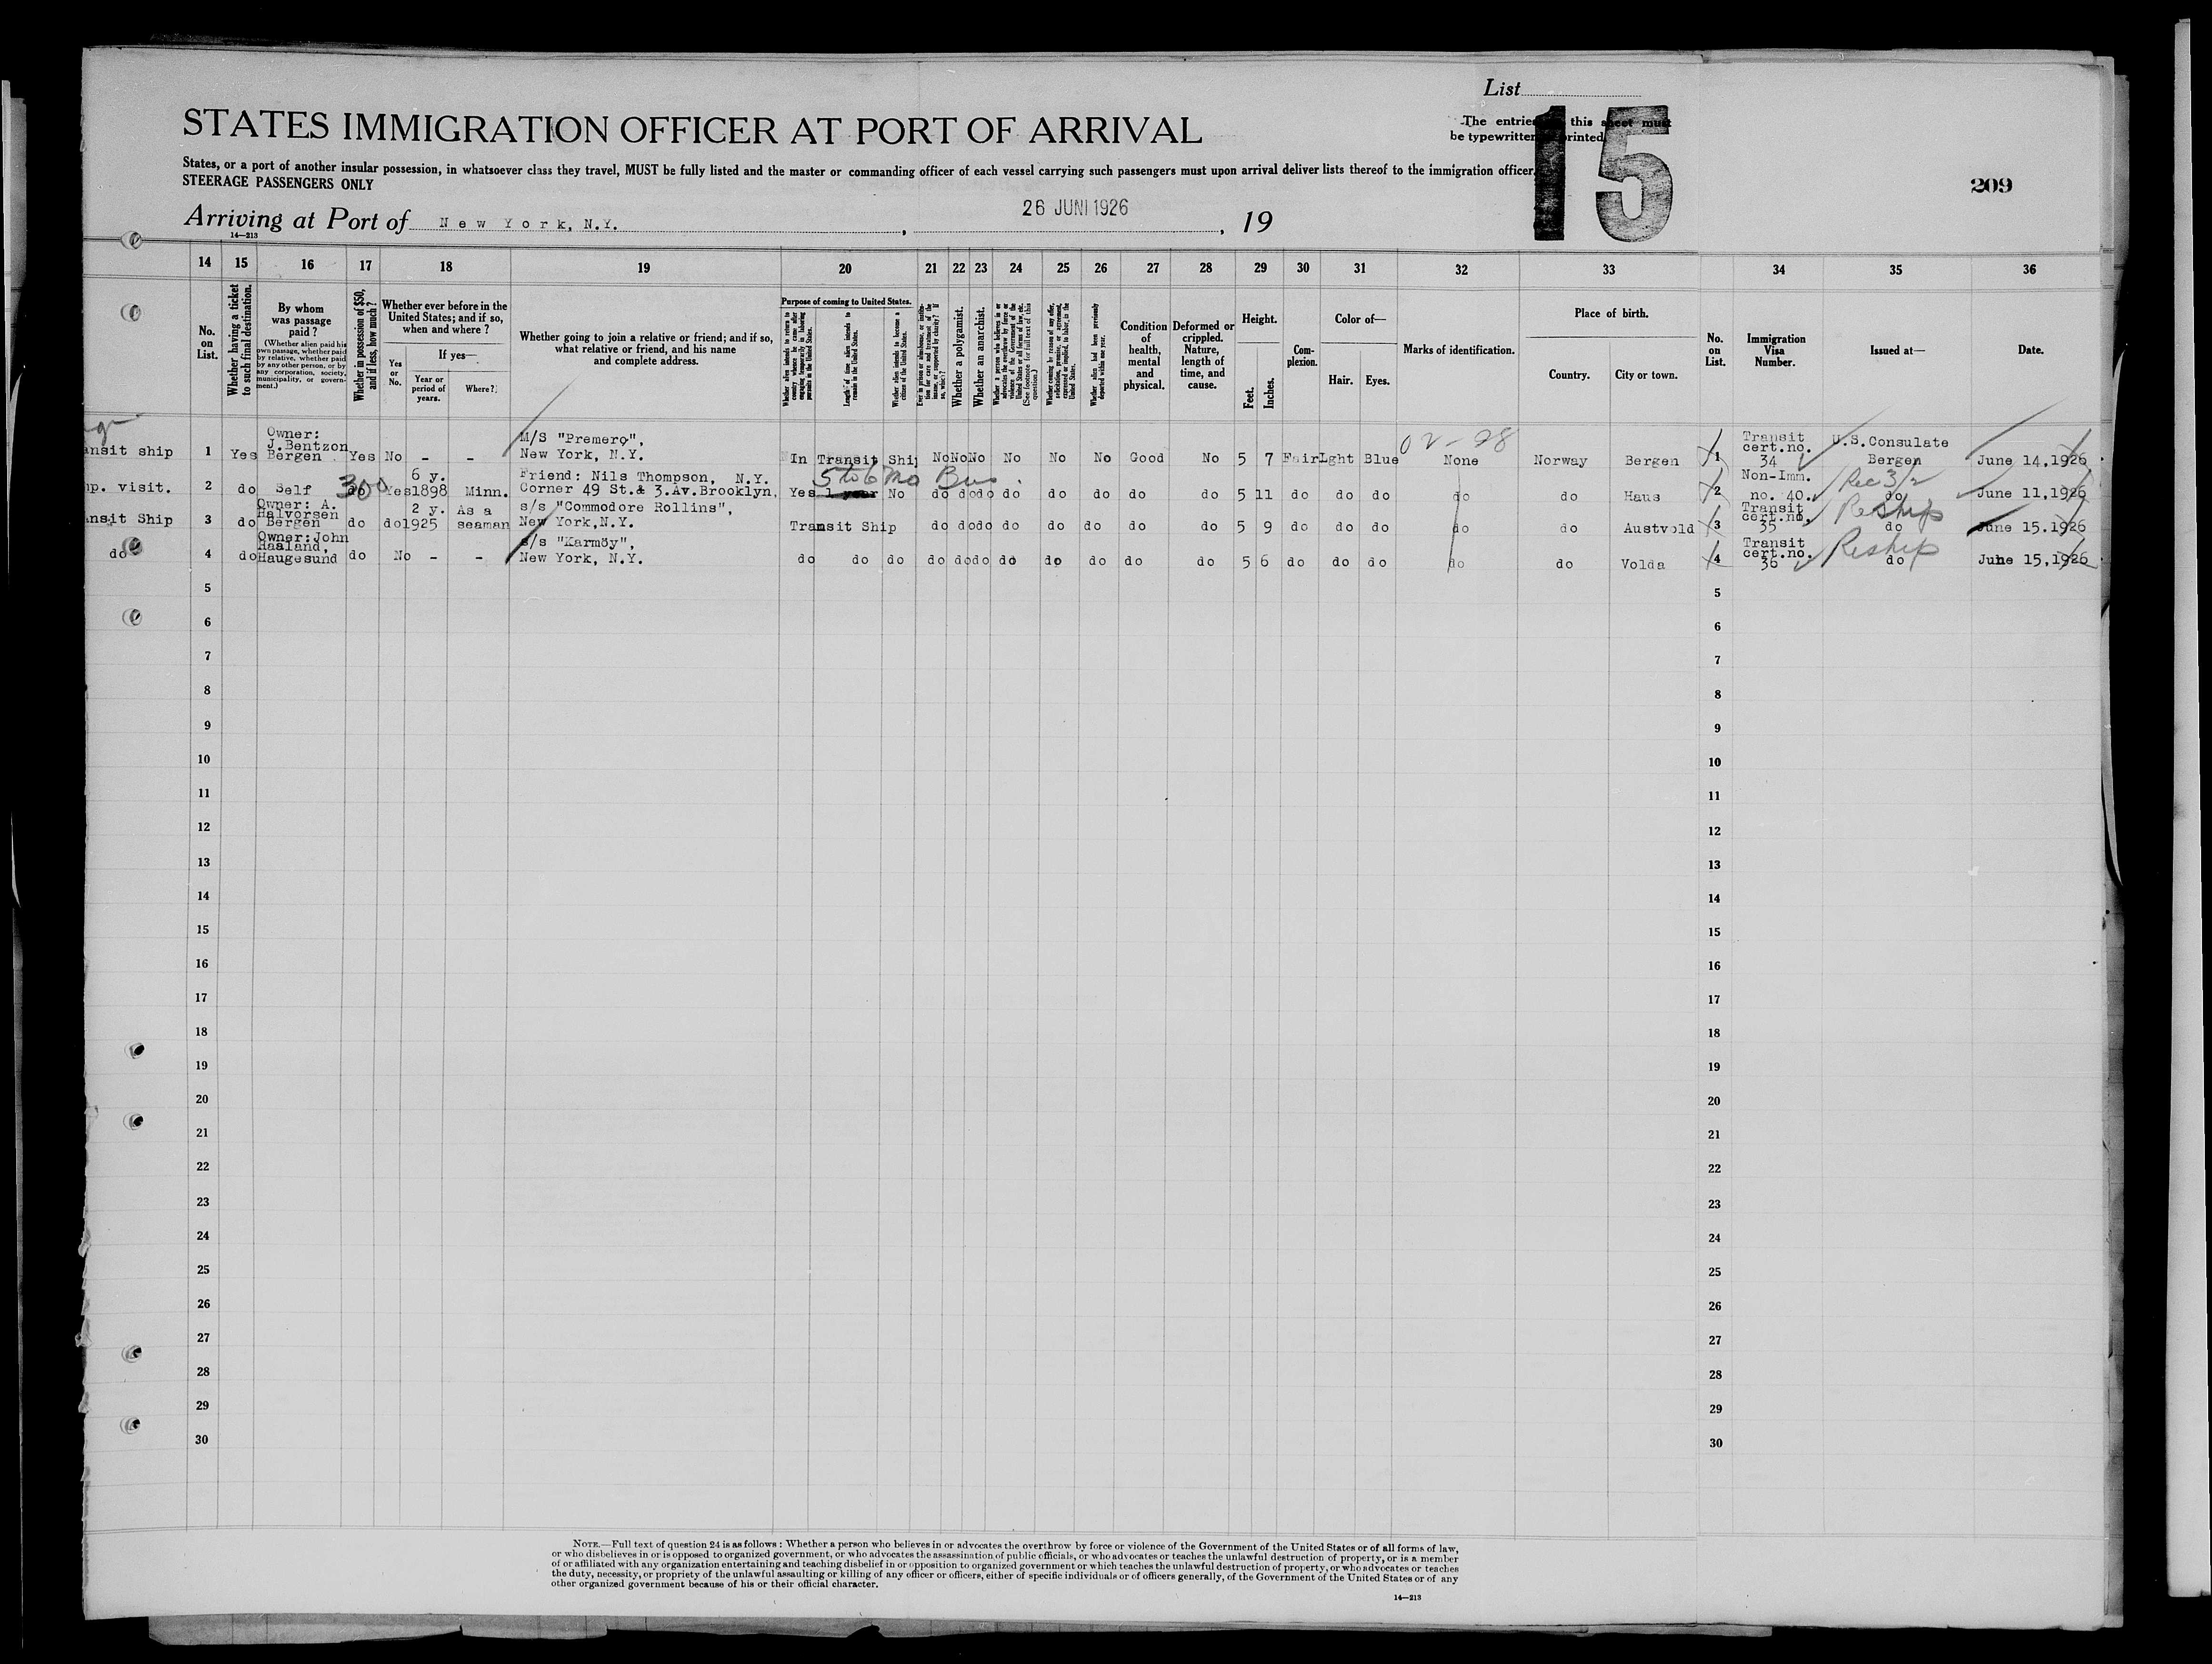 List
STATES IMMIGRATION OFFICER AT PORT OF ARRIVAL
The entries this sheet must
be typewritten printed
15
States, or a port of another insular possession, in whatsoever class they travel, MUST be fully listed and the master or commanding officer of each vessel carrying such passengers must upon arrival deliver lists thereof to the immigration officer
STEERAGE PASSENGERS ONLY
209
Arriving at Port of New York, N.Y. , 26 JUNI 1926 , 19
14—213
14 15 16 17 18 19 20 21 22 23 24 25 26 27 28 29 30 31 32 33 34 35 36
No. on List.
Whether having a ticket to such final destination.
By whom was passage paid?
(Whether alien paid his own passage, whether paid by relative, whether paid by any other person, or by any corporation, society, municipality, or government.)
Whether in possession of $50, and if less, how much?
Whether ever before in the United States; and if so, when and where?
Yes or No.
If yes—
Year or period of years.
Where?
Whether going to join a relative or friend; and if so, what relative or friend, and his name and complete address.
Purpose of coming to United States.
Whether alien intends to return to country whence he came after engaging temporarily in laboring pursuits in the United States.
Length of time alien intends to remain in the United States.
Whether alien intends to become a citizen of the United States.
Ever in prison or almshouse, or institution for care and treatment of the insane, or supported by charity? If so, which?
Whether a polygamist.
Whether an anarchist.
Whether a person who believes in or advocates the overthrow by force or violence of the Government of the United States or all forms of law, etc. (See footnote for full text of this question.)
Whether coming by reason of any offer, solicitation, promise, or agreement, expressed or implied, to labor, in the United States.
Whether alien had been previously deported within one year.
Condition of health, mental and physical.
Deformed or crippled. Nature, length of time, and cause.
Height.
Feet.
Inches.
Complexion.
Color of—
Hair.
Eyes.
Marks of identification.
Place of birth.
Country.
City or town.
No. on List.
Immigration Visa Number.
Issued at—
Date.
02-98
ansit ship 1 Yes Owner: J.Bentzon Bergen Yes No - - M/S "Premero", New York, N.Y. In Transit Ship No No No No No No Good No 5 7 Fair Lght Blue None Norway Bergen 1 Transit cert.no. 34 U.S.Consulate Bergen June 14,1926
5 to 6 Mo Bus.
mp. visit. 2 do Self 300 do Yes 6 y. 1898 Minn. Friend: Nils Thompson, N.Y. Corner 49 St.& 3.Av.Brooklyn, Yes 1 year No do do do do do do do do 5 11 do do do do do Haus 2 Non-Imm. no. 40. Rec 3/2 do June 11,1926
ansit Ship 3 do Owner: A. Halvorsen Bergen do do 2 y. 1925 As a seaman s/s "Commodore Rollins", New York,N.Y. Transit Ship do do do do do do do do 5 9 do do do do do Austvold 3 Transit cert.no. 35 Reship do June 15.1926
do 4 do Owner:John Haaland, Haugesund do No - - s/s "Karmöy", New York, N.Y. do do do do do do do do do do do 5 6 do do do do do Volda 4 Transit cert.no. 36 Reship do June 15,1926
5 5
6 6
7 7
8 8
9 9
10 10
11 11
12 12
13 13
14 14
15 15
16 16
17 17
18 18
19 19
20 20
21 21
22 22
23 23
24 24
25 25
26 26
27 27
28 28
29 29
30 30
NOTE.—Full text of question 24 is as follows: Whether a person who believes in or advocates the overthrow by force or violence of the Government of the United States or of all forms of law,
or who disbelieves in or is opposed to organized government, or who advocates the assassination of public officials, or who advocates or teaches the unlawful destruction of property, or is a member
of or affiliated with any organization entertaining and teaching disbelief in or opposition to organized government or which teaches the unlawful destruction of property, or who advocates or teaches
the duty, necessity, or propriety of the unlawful assaulting or killing of any officer or officers, either of specific individuals or of officers generally, of the Government of the United States or of any
other organized government because of his or their official character.
14—213